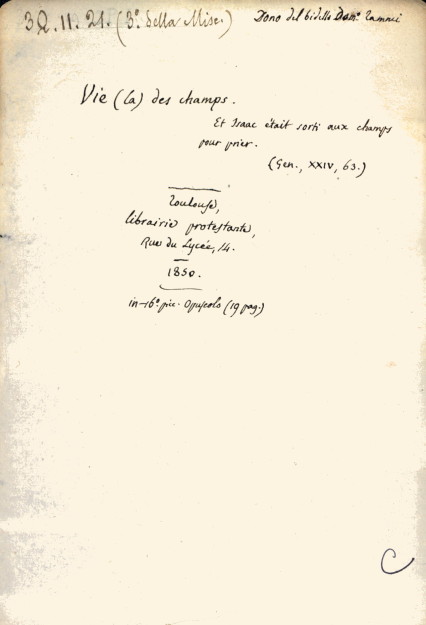 32.11.21. (3º. della Misc.)
Dono del bidello Dom.º Zammei
Vie (la) des champs.
Et Isaac était sorti aux champs
pour prier.
(Gen., XXIV, 63.)
Toulouse,
librairie protestante,
Rue du Lycée, 14.
1850.
in-16º. picc. Opuscolo (19 pag.)
C